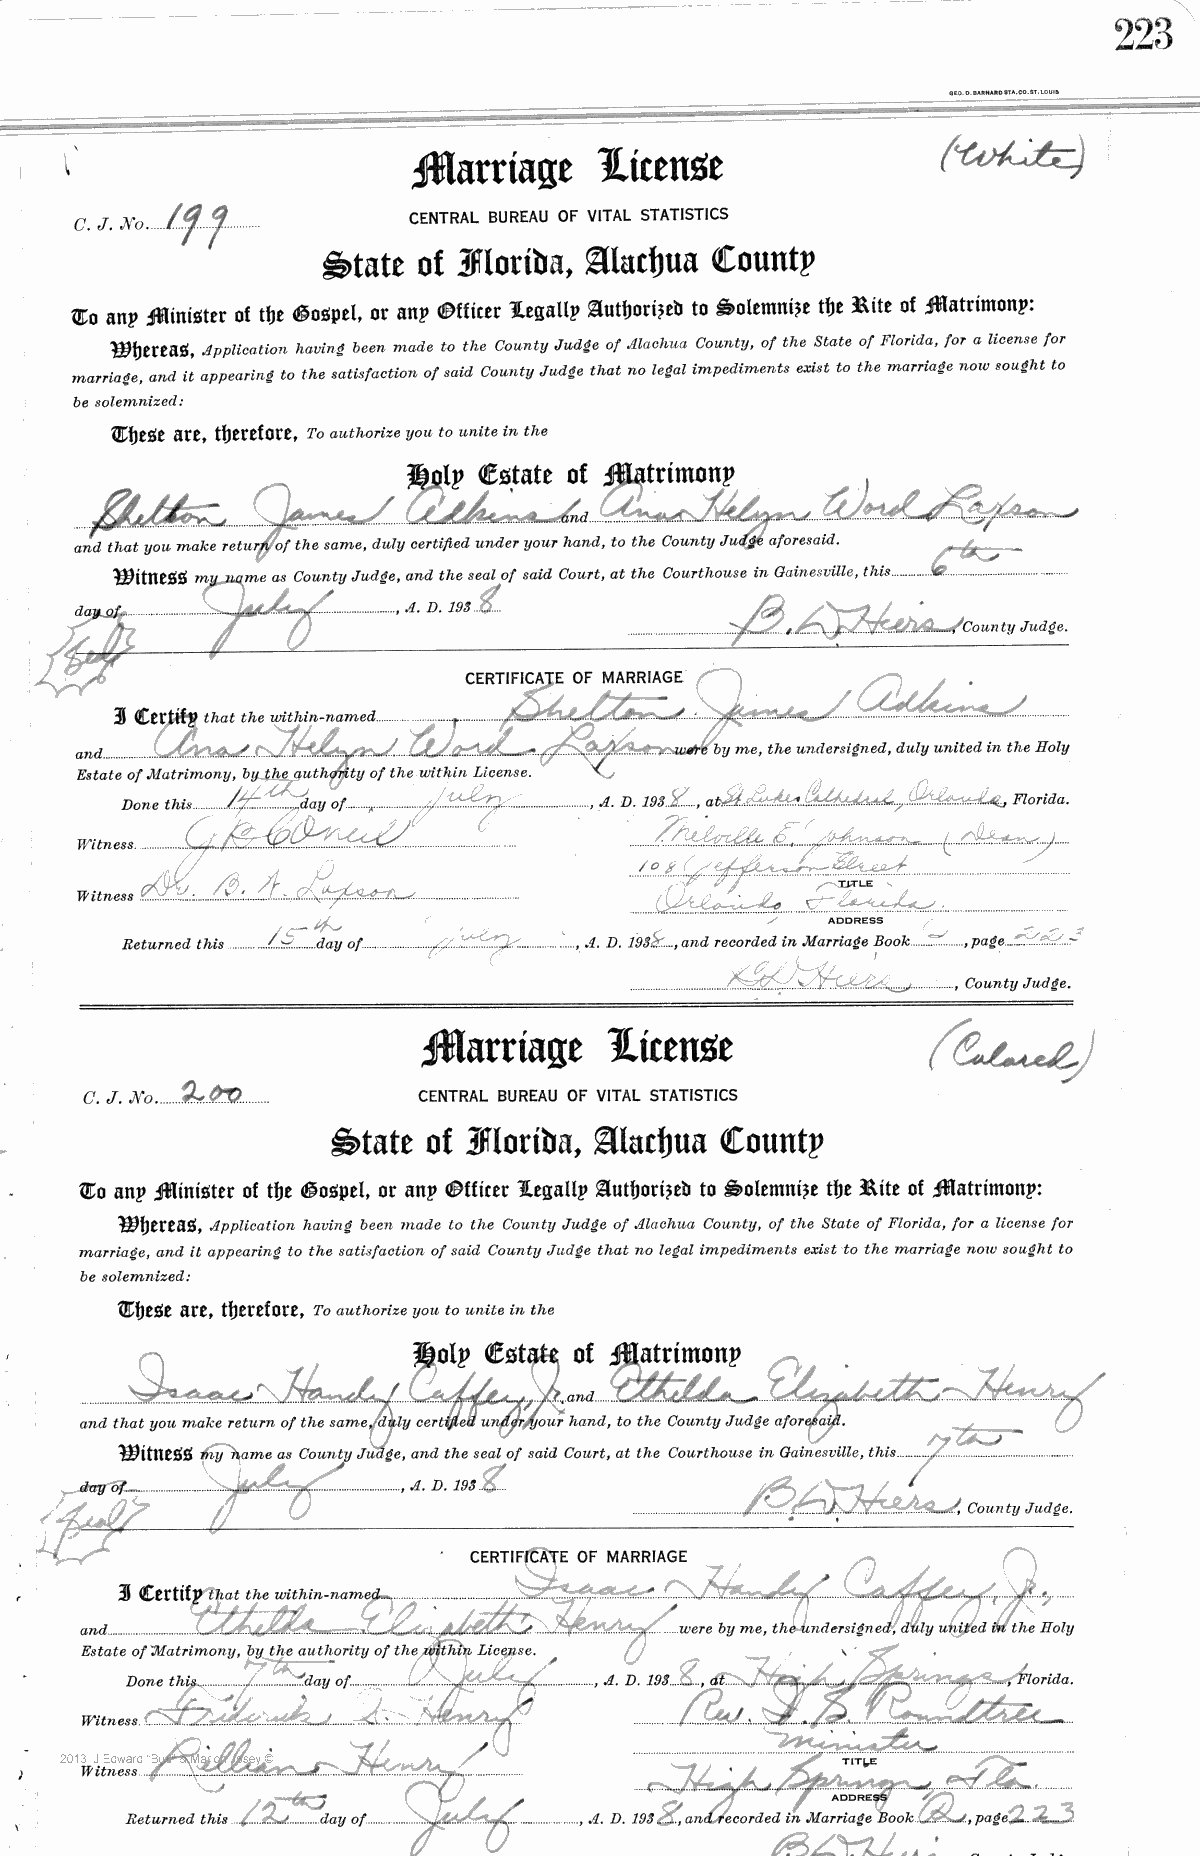 223
GEO. D. BARNARD STA. CO. ST. LOUIS
Marriage License
(White)
C. J. No. 199
CENTRAL BUREAU OF VITAL STATISTICS
State of Florida, Alachua County
To any Minister of the Gospel, or any Officer Legally Authorized to Solemnize the Rite of Matrimony:
Whereas, Application having been made to the County Judge of Alachua County, of the State of Florida, for a license for
marriage, and it appearing to the satisfaction of said County Judge that no legal impediments exist to the marriage now sought to
be solemnized:
These are, therefore, To authorize you to unite in the
Holy Estate of Matrimony
Shelton James Adkins and Ana Helyn Word Laxson
and that you make return of the same, duly certified under your hand, to the County Judge aforesaid.
Witness my name as County Judge, and the seal of said Court, at the Courthouse in Gainesville, this 6th
day of July, A. D. 1938
B. D. Hiers, County Judge.
(Seal)
CERTIFICATE OF MARRIAGE
I Certify that the within-named Shelton James Adkins
and Ana Helyn Word Laxson were by me, the undersigned, duly united in the Holy
Estate of Matrimony, by the authority of the within License.
Done this 14th day of July, A. D. 1938, at St Lukes Cathedral, Orlando, Florida.
Witness Melville E. Johnson (Dean)
108 Jefferson Street
Witness Dr. B. A. Laxson
TITLE
Orlando Florida.
ADDRESS
Returned this 15th day of July, A. D. 1938, and recorded in Marriage Book, page 223
Hiers, County Judge.
Marriage License
(Colored)
C. J. No. 200
CENTRAL BUREAU OF VITAL STATISTICS
State of Florida, Alachua County
To any Minister of the Gospel, or any Officer Legally Authorized to Solemnize the Rite of Matrimony:
Whereas, Application having been made to the County Judge of Alachua County, of the State of Florida, for a license for
marriage, and it appearing to the satisfaction of said County Judge that no legal impediments exist to the marriage now sought to
be solemnized:
These are, therefore, To authorize you to unite in the
Holy Estate of Matrimony
Isaac Handy Caffey, Jr. and Ethelda Elizabeth Henry
and that you make return of the same, duly certified under your hand, to the County Judge aforesaid.
Witness my name as County Judge, and the seal of said Court, at the Courthouse in Gainesville, this 7th
day of July, A. D. 1938
B. D. Hiers, County Judge.
(Seal)
CERTIFICATE OF MARRIAGE
I Certify that the within-named Isaac Handy Caffey, Jr.,
and Ethelda Elizabeth Henry were by me, the undersigned, duly united in the Holy
Estate of Matrimony, by the authority of the within License.
Done this 7th day of July, A. D. 1938, at High Springs, Florida.
Witness Frederick S. Henry Rev. D. S. Roundtree
minister
2013 J Edward "Bud" & Marion Josey ©
TITLE
Witness Rillian Henry High Springs, Fla.
ADDRESS
Returned this 12th day of July, A. D. 1938, and recorded in Marriage Book Q, page 223
B D Hiers, County Judge.